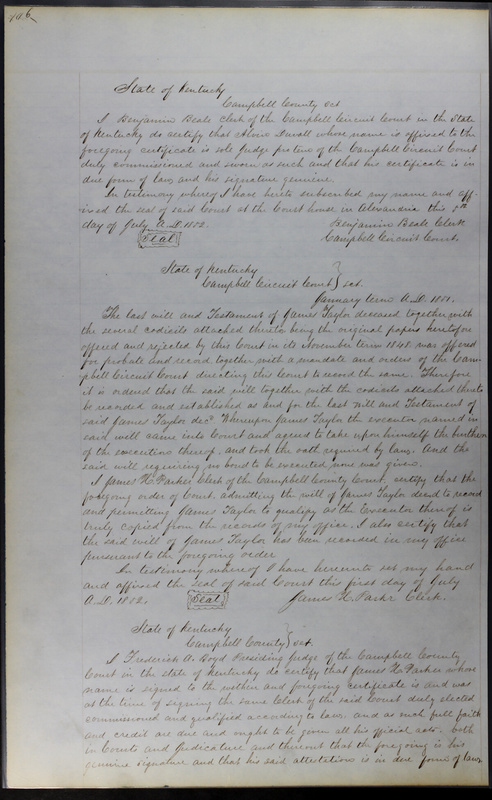 State of Kentucky
Campbell County sct
I Benjamin Beale Clerk of the Campbell Circuit Court in the State
of Kentucky do certify that Alvin Duvall whose name is affixed to the
foregoing certificate is sole Judge pro tem of the Campbell Circuit Court
duly commissioned and sworn as such and that his certificate is in
due form of law, and his signature genuine.
In testimony whereof I have hereto subscribed my name and aff-
ixed the seal of said Court at the Court house in Alexandria this
day of July A.D. 1852. Benjamin Beale Clerk
Seal Campbell Circuit Court.
State of Kentucky
Campbell Circuit Court } sct.
January term A.D. 1851.
The last will and Testament of James Taylor deceased together with
the several codicils attached thereto being the original papers heretofore
offered and rejected by this Court in its November term 1848 was offered
for probate and record together with a mandate and orders of the Cam
pbell Circuit Court directing this Court to record the same. Therefore
it is ordered that the said will together with the codicils attached thereto
be recorded and established as and for the last will and Testament of
said James Taylor decd. Whereupon James Taylor the executor named in
said will came into Court and agreed to take upon himself the burthen
of the execution thereof, and took the oath required by law. And the
said will requiring no bond to be executed, none was given.
I James H. Parker Clerk of the Campbell County Court, certify that the
foregoing order of Court admitting the will of James Taylor decd to record
and permitting James Taylor to qualify as the Executor thereof is
truly copied from the records of my office. I also certify that
the said will of James Taylor has been recorded in my office
pursuant to the foregoing order
In testimony whereof I have hereunto set my hand
and affixed the seal of said Court this first day of July
A.D. 1852. Seal James H. Parker Clerk.
State of Kentucky
Campbell County } sct.
I Frederick A. Boyd Presiding Judge of the Campbell County
Court in the state of Kentucky do certify that James H. Parker whose
name is signed to the within and foregoing certificate is and was
at the time of signing the same Clerk of the said Court duly elected
commissioned and qualified according to law. and as such full faith
and credit are due and ought to be given all his official acts. both
in Courts and Judicature and thereout that the foregoing is his
genuine signature and that his said attestation is in due form of law.